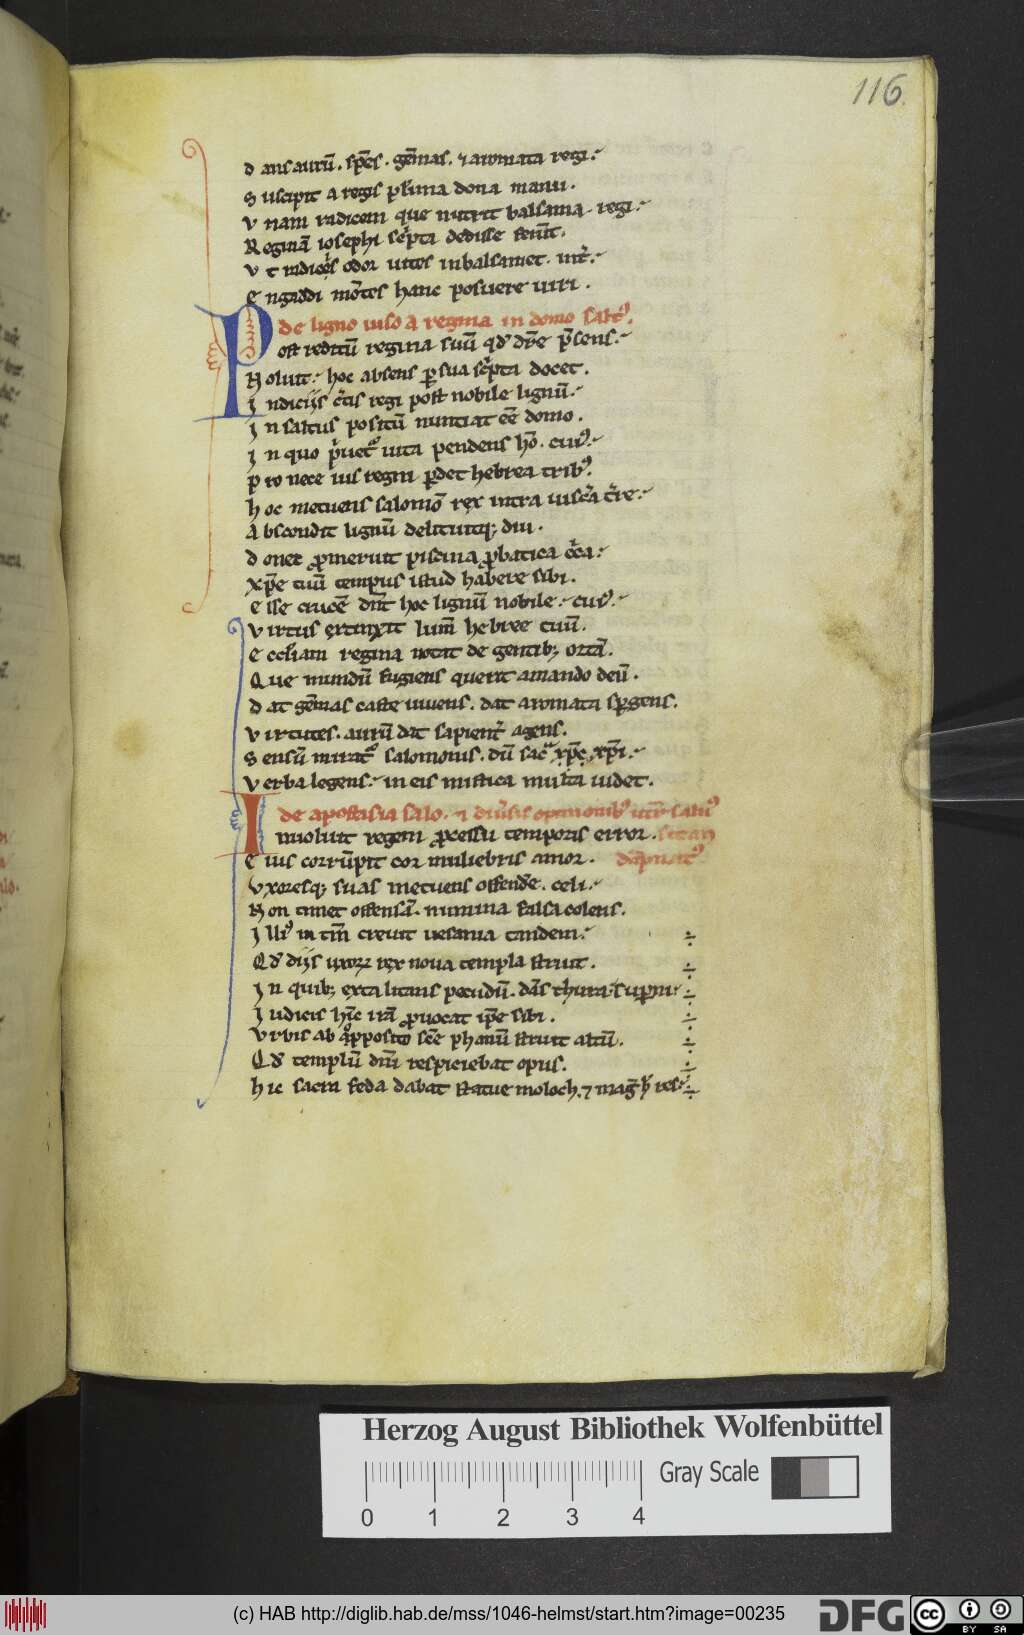 116
d ans aurū. sp̄es. gēmas. ⁊ aromata regi.
S uscipit a regis plima dona manu.
V nam radicem que nutrit balsama regi.
R eginā iosephi sc̄pta dedisse ferūt.
V t radicis odor uites inbalsamet. int̄.
E ngaddi mōtes hanc posuere uiri.
de ligno uiso a regina in domo salt᷒.
P ost reditū regina suū qd̄ dr̄e p̄sens.
N oluit. hoc absens p sua sc̄pta docet.
I ndiciis c̄tis regi post nobile lignū.
I n saltus positū nuntiat eē domo.
I n quo p̄uet᷒ uita pendens hō. cui᷒.
p ro nece ius regni pdet hebrea trib᷒.
h oc metuens salomō rex intra uiscā t̄re.
A bscondit lignū delituitq; diu.
d onec pmeruit piscina pbatica cc̄a.
xp̄e tuū tempus istud habere sibi.
E sse crucē dn̄i hoc lignū nobile. cui᷒.
V irtus extinxit lum̄ hebree tuū.
E ccl̄iam regina notat de gentib; ortā.
Q ue mundū fugiens querit amando deū.
d at gēmas caste uiuens. dat aromata spgens.
V irtutes. aurū dat sapient̄ agens.
S ensū mirat᷒ salomonis. dū sac̄ xp̄c xp̄i.
V erba legens. in eis mistica multa uidet.
de apostasia salo. ⁊ diu̓sis opinionib᷒
I nuoluit regem pcessu temporis error.
E ius corrūpit cor muliebris amor.
V xoresq; suas metuens offend̄e. celi.
N on timet offensā. numina falsa colens.
I lli᷒ in tm̄ creuit uesania tandem.
Q d̄ diis uxoꝝ rex noua templa struit.
I n quib; exta litans pecudū. dās thura. supni.
I udicis hīc irā puocat ip̄e sibi.
V rbis ab opposito sēe phanū struit altū.
Q d̄ templū dn̄i respiciebat opus.
h ic sacra feda dabat statue moloch. ⁊
Herzog August Bibliothek Wolfenbüttel
Gray Scale
0 1 2 3 4
(c) HAB http://diglib.hab.de/mss/1046-helmst/start.htm?image=00235
DFG
cc BY SA